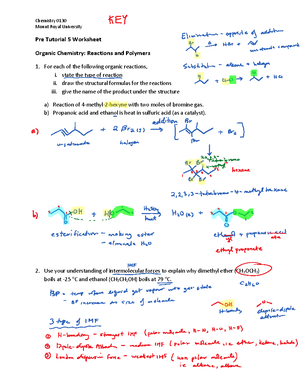 Chemistry 0130
Mount Royal University
KEY
Pre Tutorial 5 Worksheet
Elimination - opposite of addition
Organic Chemistry: Reactions and Polymers
1. For each of the following organic reactions,
i. state the type of reaction
ii. draw the structural formulas for the reactions
iii. give the name of the product under the structure
Substitution - alkane + halogen
a) Reaction of 4-methyl-2-hexyne with two moles of bromine gas.
b) Propanoic acid and ethanol is heat in sulfuric acid (as a catalyst).
a)
addition
+ 2 Br₂ (g)
+ Br₂
unsaturated
halogen
2,2,3,3-tetrabromo-4-methylhexane
b)
H₂SO₄
heat
H₂O (l) +
esterification - making ester
- eliminate H₂O
ethanol + propanoic acid
ethyl propanoate
2. Use your understanding of intermolecular forces to explain why dimethyl ether (CH₃OCH₃)
boils at -25 °C and ethanol (CH₃CH₂OH) boils at 79 °C.
C₂H₆O
BP = temp where liquid get vapour into gas state
- BP increases as size of molecule
H-bonding
dipole-dipole attraction
3 type of IMF
① H-bonding - strongest IMF (polar molecule, H-N, H-O, H-F)
② Dipole-dipole attraction - medium IMF (polar molecule ie ether, ketone, halide)
③ London dispersion force - weakest IMF (non polar molecule)
ie alkane, alkene